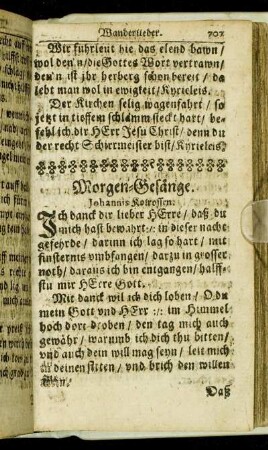 Wanderlieder. 701
Wir fuhrleut hie das elend bawn/
wol den'n/die Gottes Wort vertrawn/
den'n ist jhr herberg schon bereit/ da
lebt man wol in ewigkeit/Kyrieleis.
Der Kirchen selig wagenfahrt/ so
jetzt in tieffem schlamm steckt hart/ be-
fehl ich dir HErr Jesu Christ/ denn du
der recht Schirmeister bist/Kyrieleis.
Morgen-Gesänge.
Johannis Kolrossen.
ICh danck dir lieber HErre/ daß du
mich hast bewahrt:,: in dieser nacht
gefehrde/ darinn ich lag so hart/ mit
finsternis umbfangen/ darzu in grosser
noth/ daraus ich bin entgangen/ halff-
stu mir HErre Gott.
Mit danck wil ich dich loben/ O du
mein Gott vnd HErr :,: im Himmel
hoch dort droben/ den tag mich auch
gewähr/ warumb ich dich thu bitten/
vnd auch dein will mag seyn/ leit mich
in deinen sitten/ vnd brich den willen
Daß